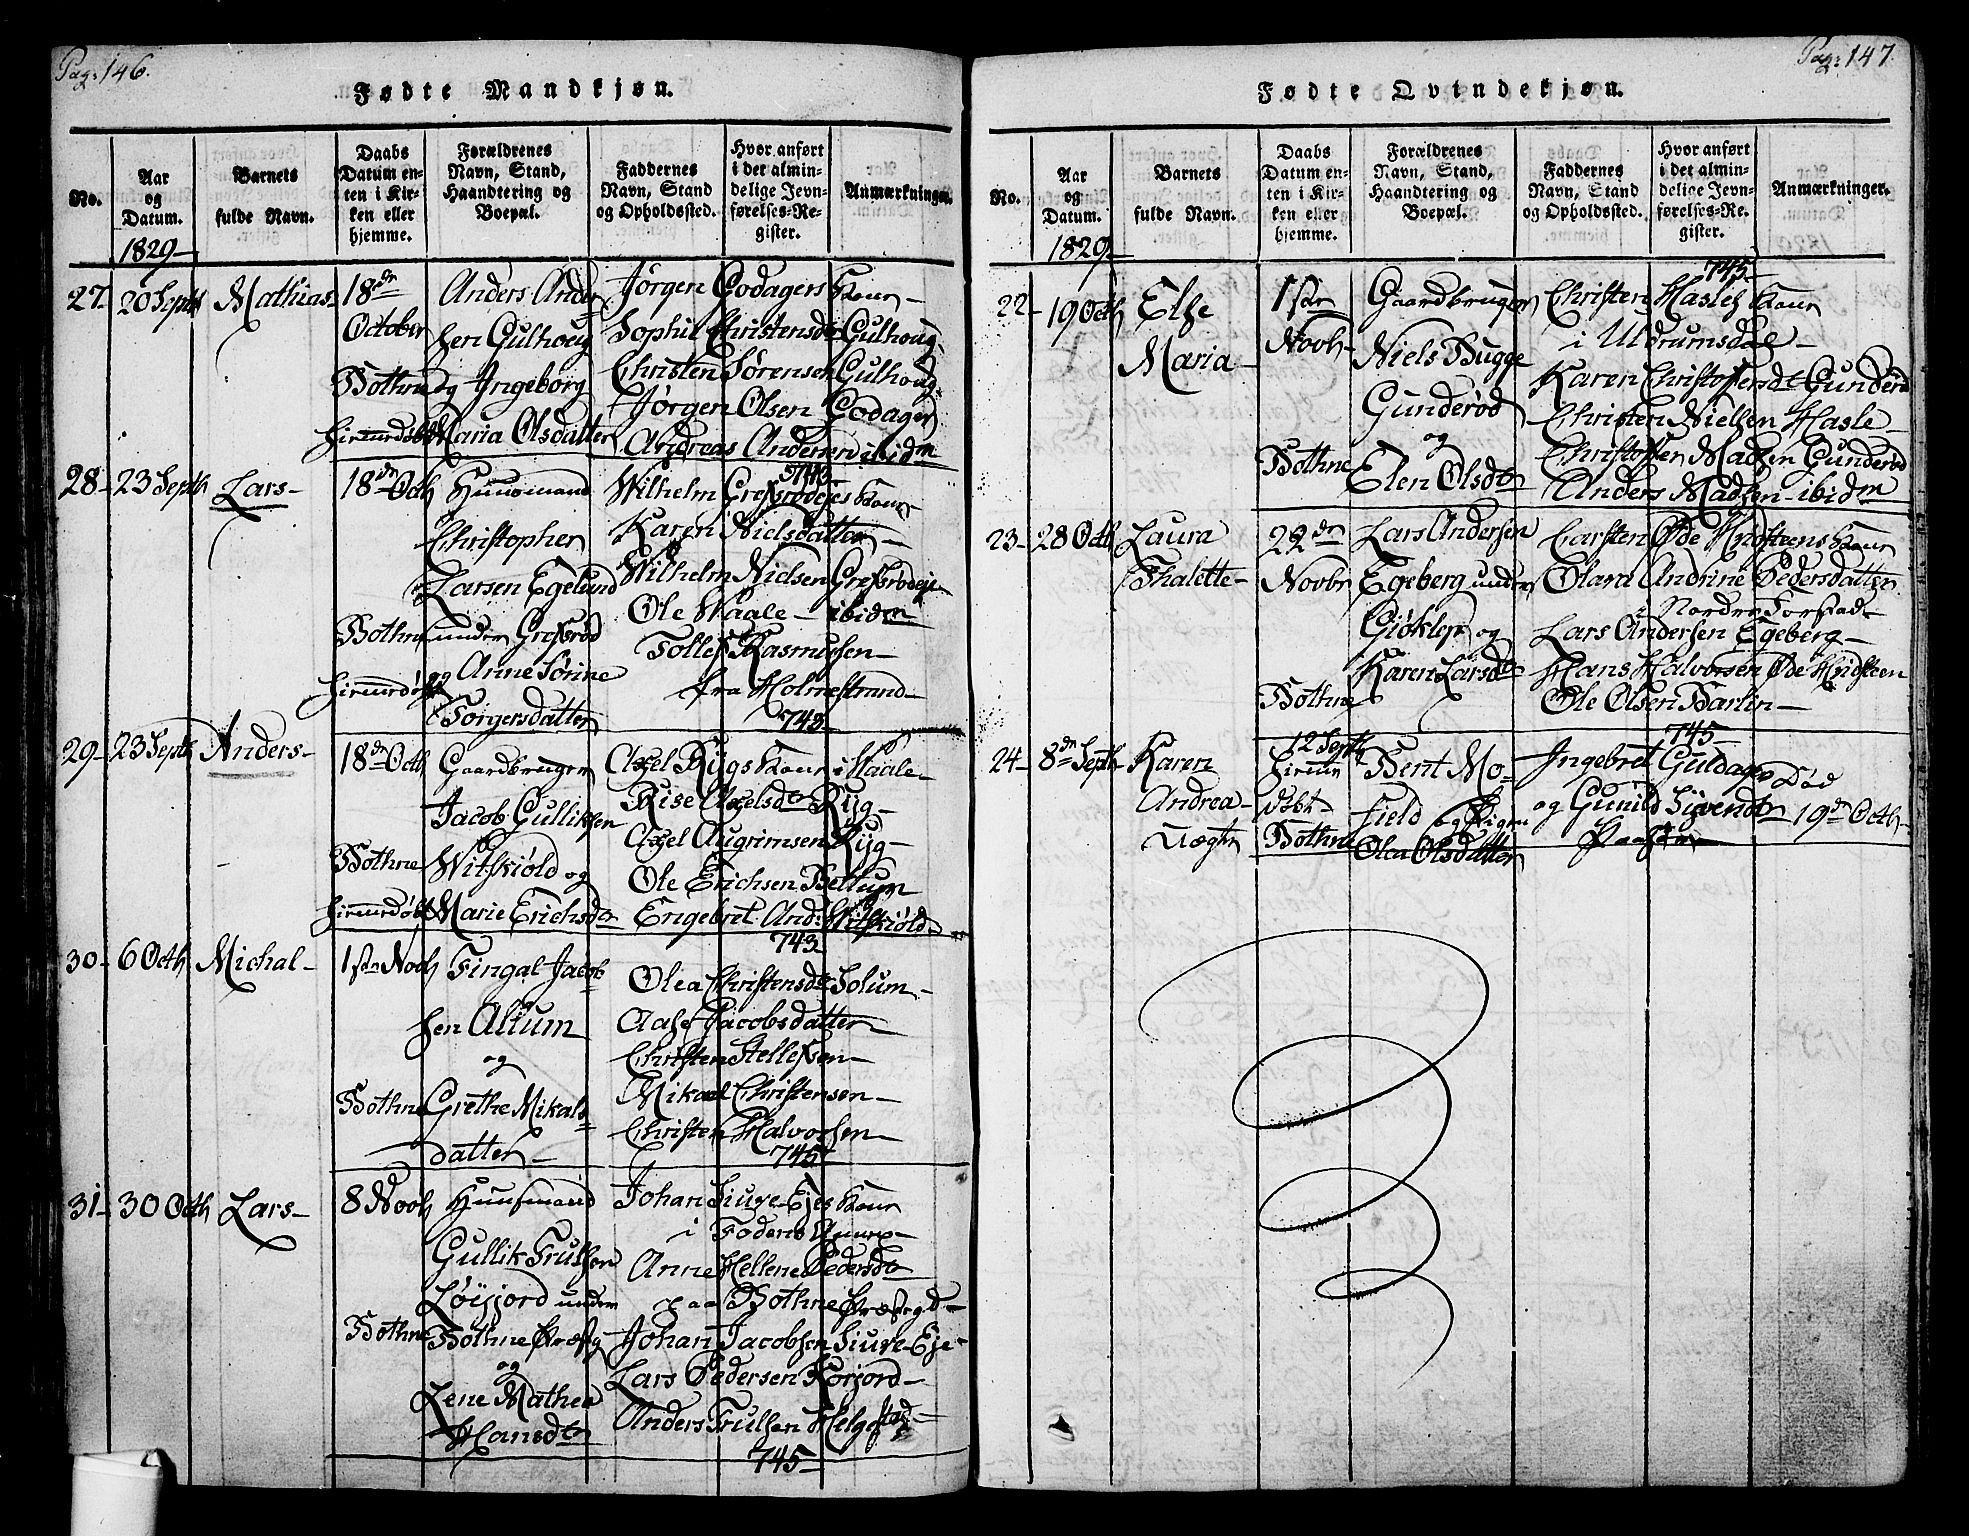 Pag: 146.
Fødte Mandkjøn.
No.
Aar
og
Datum.
1829-
Barnets
fulde Navn.
Daabs
Datum en-
ten i Kir-
ken eller
hjemme.
Forældrenes
Navn, Stand,
Haandtering og
Boepæl.
Faddernes
Navn, Stand
og Opholdssted.
Hvor anført
i det almin-
delige Jevn-
førelses-Re-
gister.
Anmærkninger.
27- 20 Septb Mathias-
18de
October
Bothne
Hiemedøbt
Anders Ander
sen Gulhoug
og Ingeborg
Maria Olsdatter
Jørgen Godagers Kone-
Sophie Christensdr Gulhoug-
Christen Sørensen Gulhoug-
Jørgen Olsen Godager
Andreas Andersen ibidm
743
28- 23 Septb Lars-
18de Octb
Bothne
Hiemedøbt
Huusmand
Christopher
Larsen Egelund
under Grefsrød
og Anne Sørine
Torgersdatter
Wilhelm Grefsrødejes Kone
Karen Nielsdatter-
Wilhelm Nielsen Grefsrødeje
Ole Waale- ibidm
Tollef Rasmussen-
fra Holmestrand-
743
29- 23 Septb Anders-
18de Octb
Bothne
Hiemedøbt
Gaardbruger
Jacob Gulliksen
Witskiøld og
Marie Erichsdr
Axel Rygs Kone i Waale-
Rise Axelsdr Ryg-
Axel Augrimsen Ryg-
Ole Erichsen Bettum
Engebret And: Witskiøld-
743-
30- 6 Octb Michal-
1ste Novb
Bothne
Fingal Jacob
sen Altum
og
Grethe Mikals
datter-
Olea Christensdr Solum-
Aase Jacobsdatter-
Christen Stellefsen-
Mikael Christensen-
Christen Halvorsen-
745-
31- 30 Octb Lars-
8 Novb
Bothne
Huusmand
Gullik Trulsen
Løijord under
Bothne Præstg
og
Lene Mathea
Hansdr
Johan Siure-Ejes Kone
i Foderes Annex-
Anne Hellene Pedersdr
paa Bothne Præstegd-
Johan Jacobsen Siure-Eje-
Lars Pedersen Korjord-
Anders Trulsen Helgestad-
745-
Pag: 147.
Fødte Qvindekjøn.
No.
Aar
og
Datum.
1829-
Barnets
fulde Navn.
Daabs
Datum en-
ten i Kir-
ken eller
hjemme.
Forældrenes
Navn, Stand,
Haandtering og
Boepæl.
Faddernes
Navn, Stand
og Opholdssted.
Hvor anført
i det almin-
delige Jevn-
førelses-Re-
gister.
Anmærkninger.
745-
22- 19 Octb Else
Maria-
1ste
Novb-
Bothne
Gaardbruger
Niels Bugge
Gunderød
og
Elen Olsdr
Christen Hasles Kone
i Uldrumsdal-
Karen Christoffersdr Gunderød
Christen Nielsen Hasle-
Christoffer Madsen Gunderød
Anders Madsen- ibidm
23- 28 Octb Laura
Thalette-
22de
Novbr
Bothne
Lars Andersen
Egeberg under
Giøklep og
Karen Larsdr
Carsten Øde Hvidsteens Kone
Olava Andrine Pedersdatter
Nordre Forstad-
Lars Andersen Egeberg-
Hans Halvorsen Øde Hvidsteen
Ole Olsen Barlin-
745-
24- 8de Septb Karen
Andrea-
Uægte
12 Septb
Hiemme
døbt
Bothne
Bent Mo-
field og Pigen
Olea Olsdatter
Ingebret Guldager
og Gunild Sivendr
Død
19de Octb-